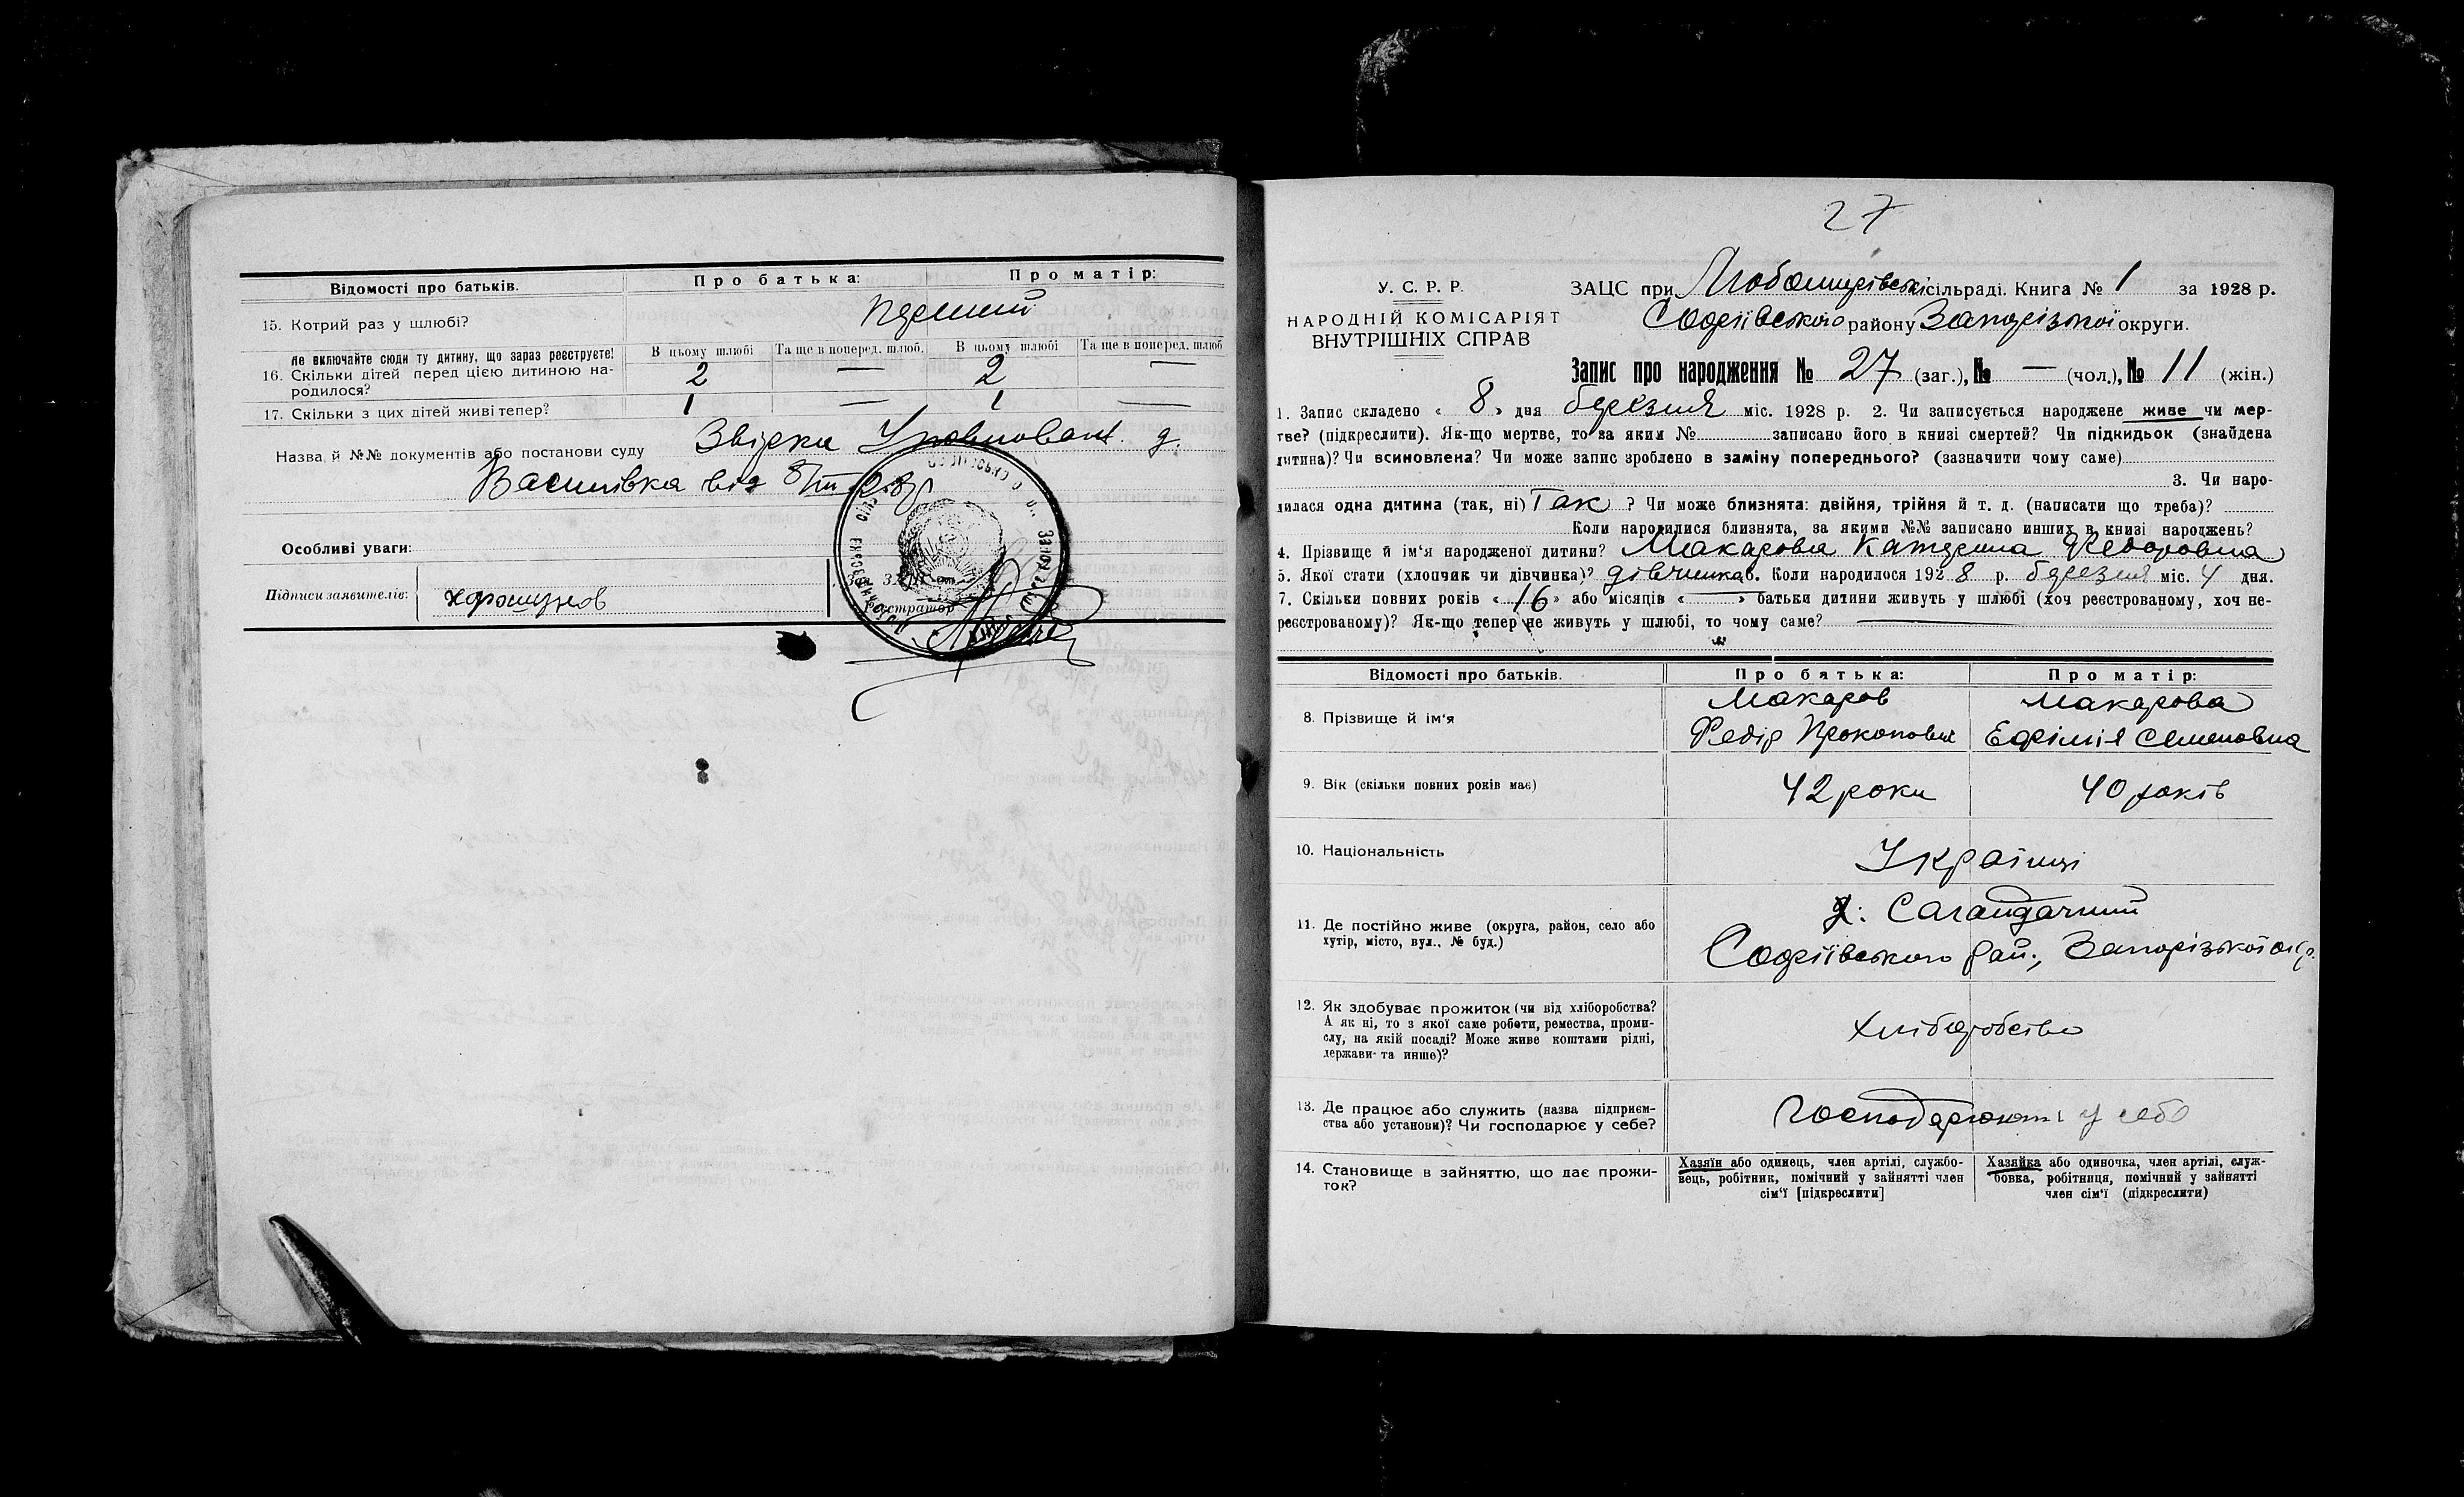 Відомості про батьків.
Про батька:
Про матір:
15. Котрий раз у шлюбі?
перший
Не включайте сюди ту дитину, що зараз реєструєте!
16. Скільки дітей перед цією дитиною народилося?
В цьому шлюбі
Та ще в поперед. шлюб.
В цьому шлюбі
Та ще в поперед. шлюб
2 — 2 —
17. Скільки з цих дітей живі тепер?
1 — 1 —
Назва й №№ документів або постанови суду
Звірки д.
Василівка від 8/III 28 р
Особливі уваги:
Підписи заявителів:
Хоршунов
27
У. С. Р. Р.
НАРОДНІЙ КОМІСАРІЯТ
ВНУТРІШНІХ СПРАВ
ЗАЦС при Любомирівській сільраді. Книга № 1 за 1928 р.
Софіївського району Запорізької округи.
Запис про народження № 27 (заг.), № — (чол.), № 11 (жін.)
1. Запис складено « 8 » дня березня міс. 1928 р. 2. Чи записується народжене живе чи мер-
тве? (підкреслити). Як-що мертве, то за яким № записано його в книзі смертей? Чи підкидьок (знайдена
дитина)? Чи всиновлена? Чи може запис зроблено в заміну попереднього? (зазначити чому саме)
3. Чи наро-
дилася одна дитина (так, ні) Так ? Чи може близнята: двійня, трійня й т. д. (написати що треба)?
Коли народилися близнята, за якими №№ записано инших в книзі народжень?
4. Прізвище й ім'я народженої дитини? Макарова Катерина Федоровна
5. Якої стати (хлопчик чи дівчинка)? дівчинка 6. Коли народилося 1928 р. березня міс. 4 дня.
7. Скільки повних років « 16 » або місяців « — » батьки дитини живуть у шлюбі (хоч реєстрованому, хоч не-
реєстрованому)? Як-що тепер не живуть у шлюбі, то чому саме? —
Відомості про батьків.
Про батька:
Про матір:
8. Прізвище й ім'я
Макаров
Федір Прокопович
Макарова
Ефімія Семеновна
9. Вік (скільки повних років має)
42 роки
40 років
10. Національність
Українці
11. Де постійно живе (округа, район, село або
хутір, місто, вул., № буд.)
х. Сагайдачний
Софіївського рай., Запорізької окр.
12. Як здобуває прожиток (чи від хліборобства?
А як ні, то з якої саме роботи, ремества, проми-
слу, на якій посаді? Може живе коштами рідні,
держави та инше)?
хліборобство
13. Де працює або служить (назва підприєм-
ства або установи)? Чи господарює у себе?
Господарюють у себе
14. Становище в зайняттю, що дає прожи-
ток?
Хазяїн або одинець, член артілі, службо-
вець, робітник, помічний у зайнятті член
сім'ї [підкреслити]
Хазяйка або одиночка, член артілі, служ-
бовка, робітниця, помічний у зайнятті
член сім'ї (підкреслити)